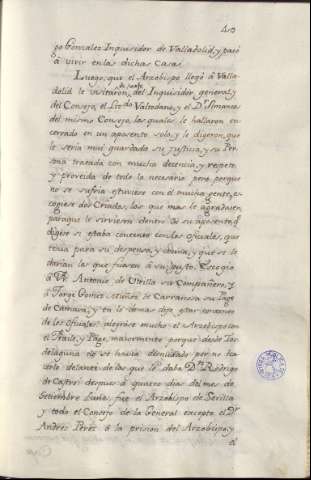 40
po Gonzalez Inquisidor de Valladolid, y pasó
á vivir en las dichas Casas
Luego que el Arzobispo llegó á Valla-
de parte
dolid le visitaron, del Inquisidor general, y
del Consejo, el Lic.do Valtodano, y el D.r Simancas
del mismo Consejo, los quales le hallaron en
cerrado en un aposento solo, y le digeron, que
le sería mui guardada su justicia, y su Per
sona tratada con mucha decencia, y respeto
y proveida de todo lo necesario pero porque
no se sufria estuviese con el mucha gente, es
cogiese dos Criados, los que mas le agradasen
para que le sirviesen dentro de su aposento, q.e
digese si estaba contento con los oficiales, que
tenia para su despensa, y cocina, y que se le
darian los que fuesen á su gusto. Escogió
á Fr. Antonio de Utrilla su Compañero, y
á Jorge Gomez Muñoz de Carrascosa su Page
de Camara, y en lo demas dijo estar contento
de los oficiales: alegróse mucho el Arzobispo con
el Fraile, y Page, maiormente porque desde Tor
delaguna no se havia desnudado por no ha
cerlo delante de los que le daba D.n Rodrigo
de Castro: despues á quince dias del mes de
Setiembre fue el Arzobispo de Sevilla
y todo el Consejo de la General excepto el D.r
Andres Perez á la prision del Arzobispo, y
el